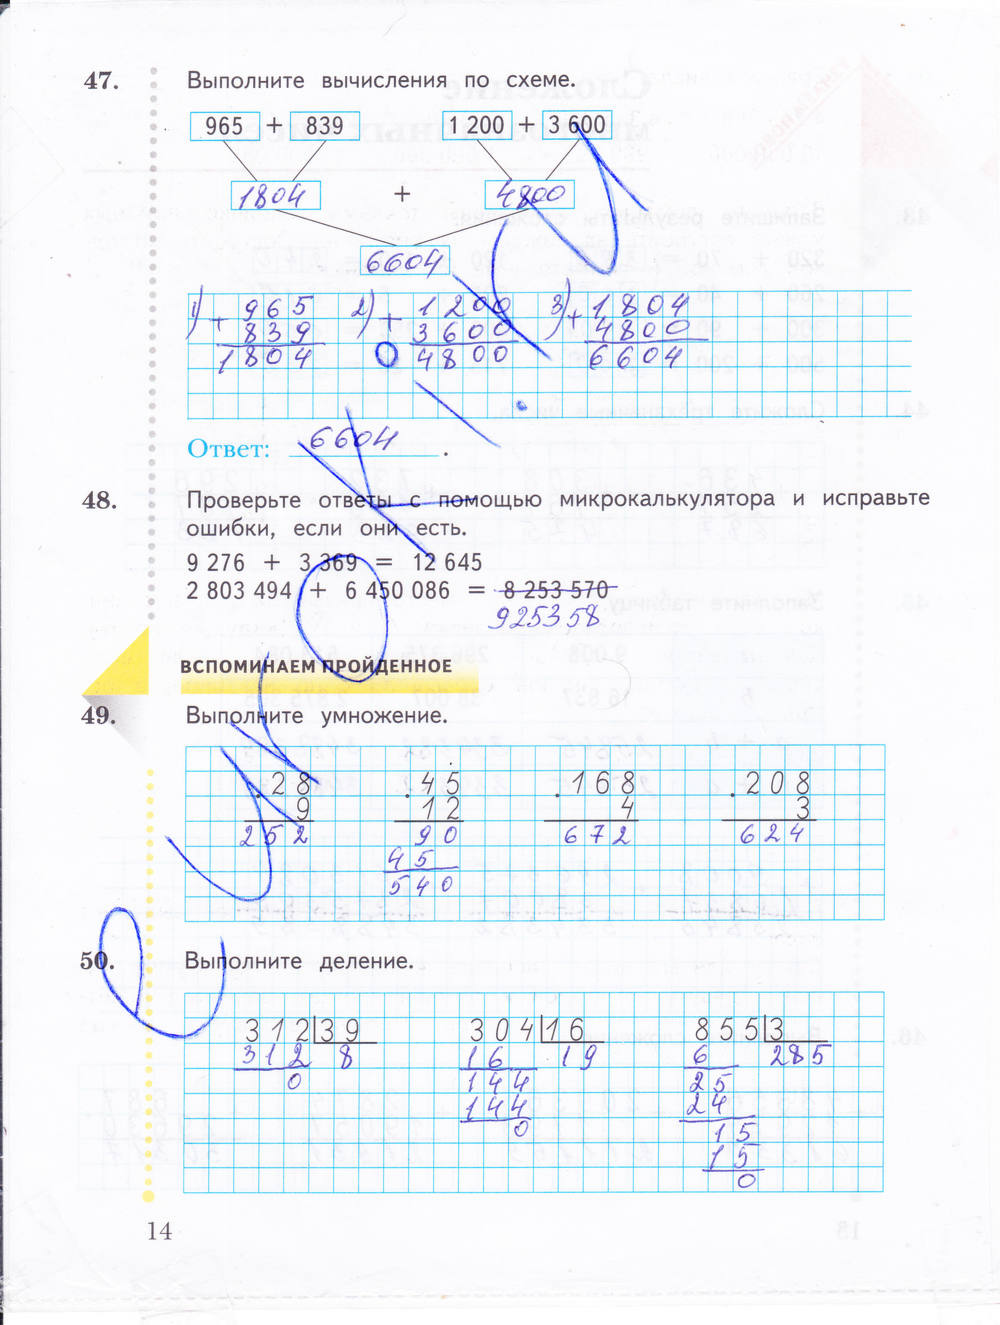 47. Выполните вычисления по схеме.
965 + 839 1 200 + 3 600
1804 + 4800
6604
1) + 965 2) + 1200 3) + 1804
839 3600 4800
1804 4800 6604
Ответ: 6604.
48. Проверьте ответы с помощью микрокалькулятора и исправьте
ошибки, если они есть.
9 276 + 3 369 = 12 645
2 803 494 + 6 450 086 = 8 253 570
925358
ВСПОМИНАЕМ ПРОЙДЕННОЕ
49. Выполните умножение.
· 28 · 45 · 168 · 208
9 12 4 3
252 90 672 624
45
540
50. Выполните деление.
312 39 304 16 855 3
312 8 16 19 6 285
0 144 25
144 24
0 15
15
0
14